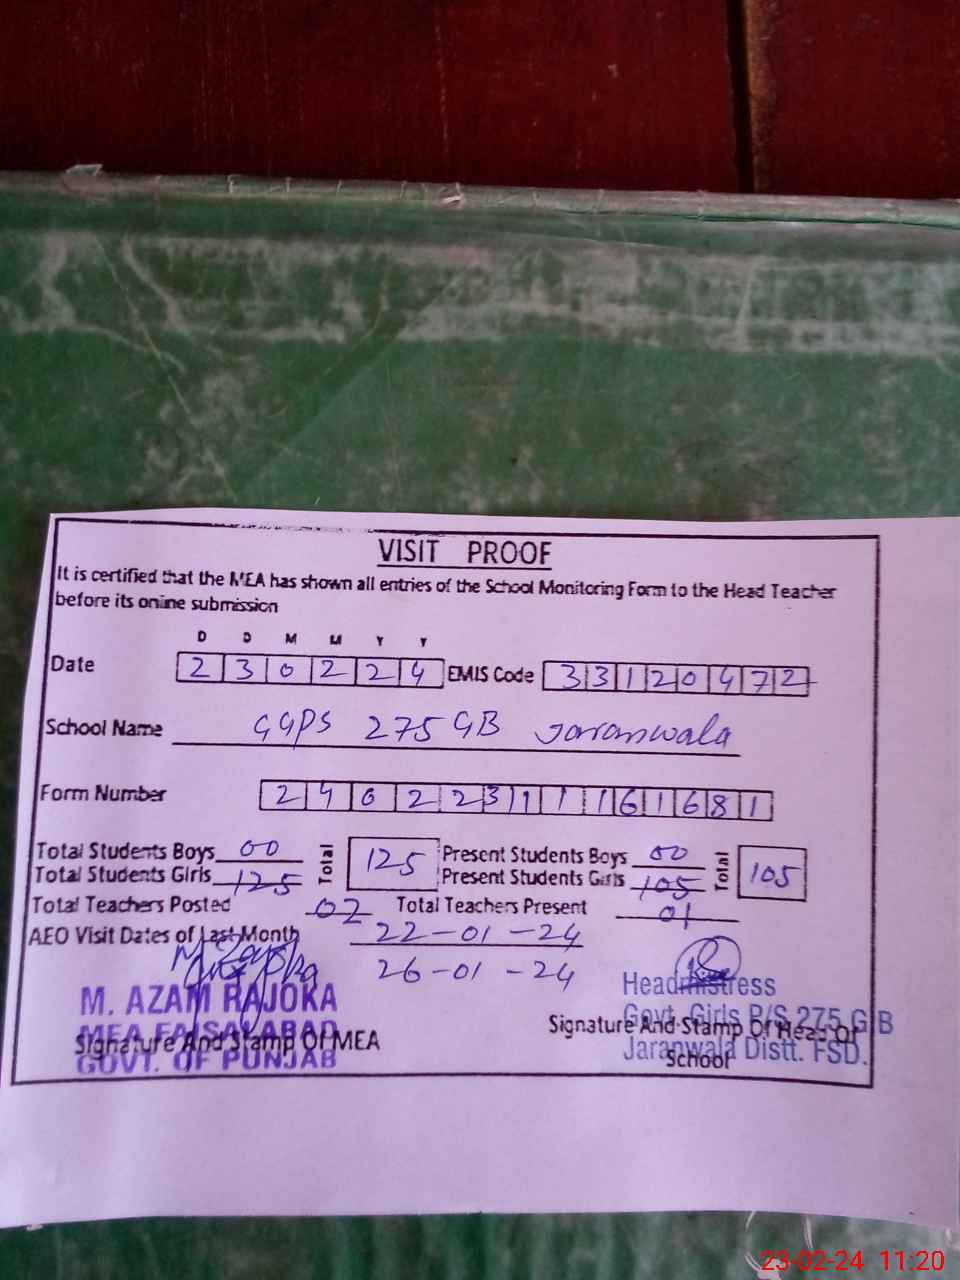 VISIT PROOF
It is certified that the MEA has shown all entries of the School Monitoring Form to the Head Teacher
before its online submission
D D M M Y Y
Date 230224 EMIS Code 33120472
School Name GGPS 275 GB Jaranwala
Form Number 24022311161681
Total Students Boys 00 Total 125 Present Students Boys 00 Total 105
Total Students Girls 125 Present Students Girls 105
Total Teachers Posted 02 Total Teachers Present 01
AEO Visit Dates of Last Month 22-01-24
26-01-24
M. AZAM RAJOKA
MEA FAISALABAD
GOVT. OF PUNJAB
Signature And Stamp Of MEA
Headmistress
Govt. Girls P/S 275 G B
Jaranwala Distt. FSD.
Signature And Stamp Of Head Of
School
23-02-24 11:20